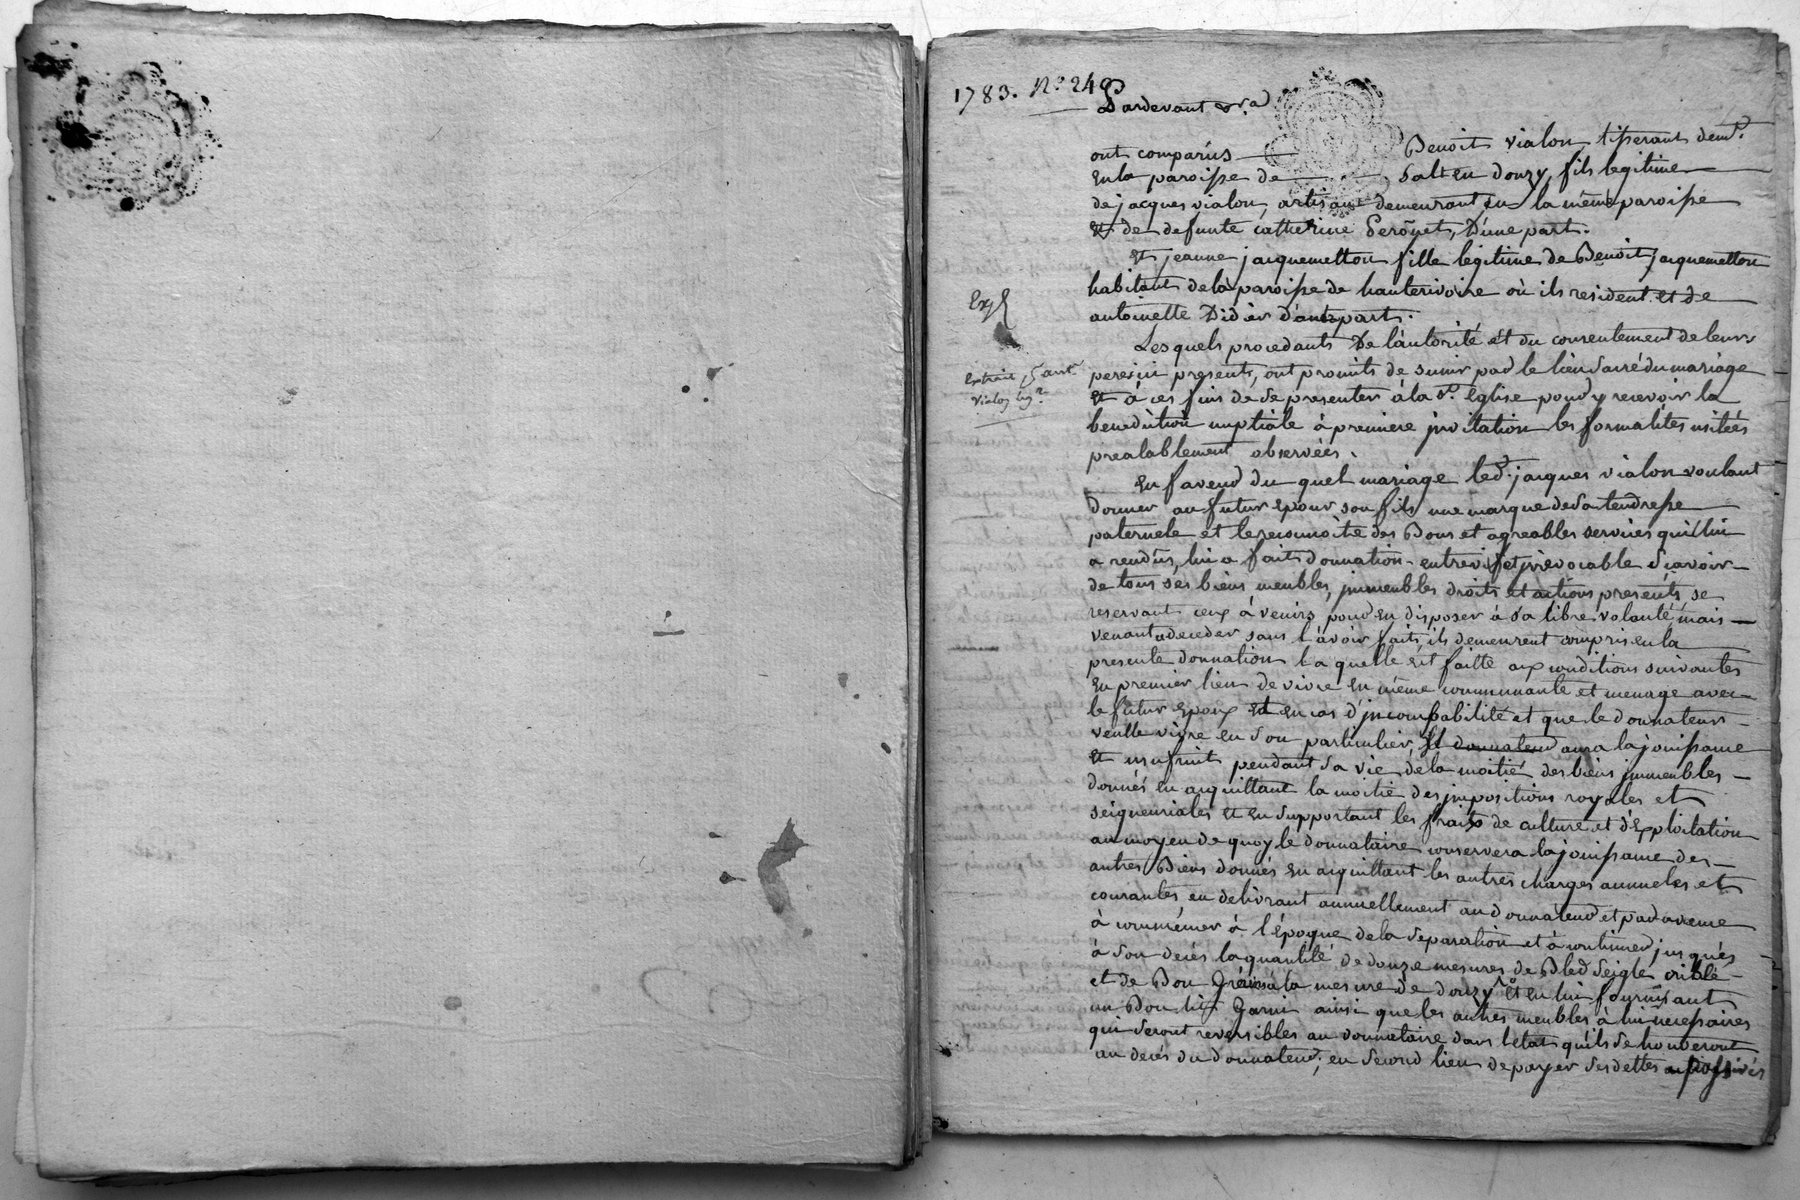 1783. N.o 249
Pardevant &.ra
ont comparus Benoit vialon, tisserant dem.t
en la paroisse de Salt en donzy, fils legitime
de jacques vialon, artisant demeurant en la même paroisse
et de defunte catherine Peroÿet, D'une part.
et jeanne jacquemetton fille legitime de Benoit jacquemetton
habitant de la paroisse de hauterivoire où ils resident et de
antoinette Didier d'autre part.
Exp
Lesquels procedants De l'autorité et du consentement de leurs
peres ici presents, ont promits de sunir par le lien sacré du mariage
Extrait
et à ces fins de se presenter à la S.te Eglise pour y recevoir la
benediction nuptiale à premiere jnvitation les formalités usitées
prealablement observées.
en faveur du quel mariage led. jacques vialon voulant
donner au futur epoux son fils une marque de sa tendresse
paternele et le reconnoitre des Bons et agreables services qu'il lui
a rendus, lui a fait donnation entrevif et jrrevocable Scavoir
de tous ses biens meubles, jmmeubles droits et actions presents, se
reservant ceux à venirs pour en disposer à sa libre volonté, mais
venant a deceder sans l'avoir fait, ils demeurent compris en la
presente donnation la quelle est faitte aux conditions suivantes
en premier lieu de vivre en même communauté et menage avec
le futur epoux et en cas d'jncompabilité et que le donnateur
veulle vivre en son particulier, Il donnateur aura la jouissance
et usufruit pendant sa vie de la moitié des biens jmmeubles
donnés en acquittant la moitié des jmpositions royales et
seigneuriales et en supportant les fraits de culture et d'Exploitation
au moyen de quoy le donnataire conservera la jouissance des
autres Biens donnés en acquittant les autres charges annueles et
courantes, en delivrant annuellement au donnateur et par avence
à commencer à l'époque de la separation et à continuer jusqués
à son decés la quantité de douze mesures de Bled Seigle criblé
et de Bon Grains à la mesure de donzy et en lui fournissant
un Bon lit Garni ainsi que les autres meubles à lui necessaires
qui seront reversibles au donnataire dans l'etat qu'ils se trouveront
au decés du donnateur, en second lieu de payer ses dettes passives